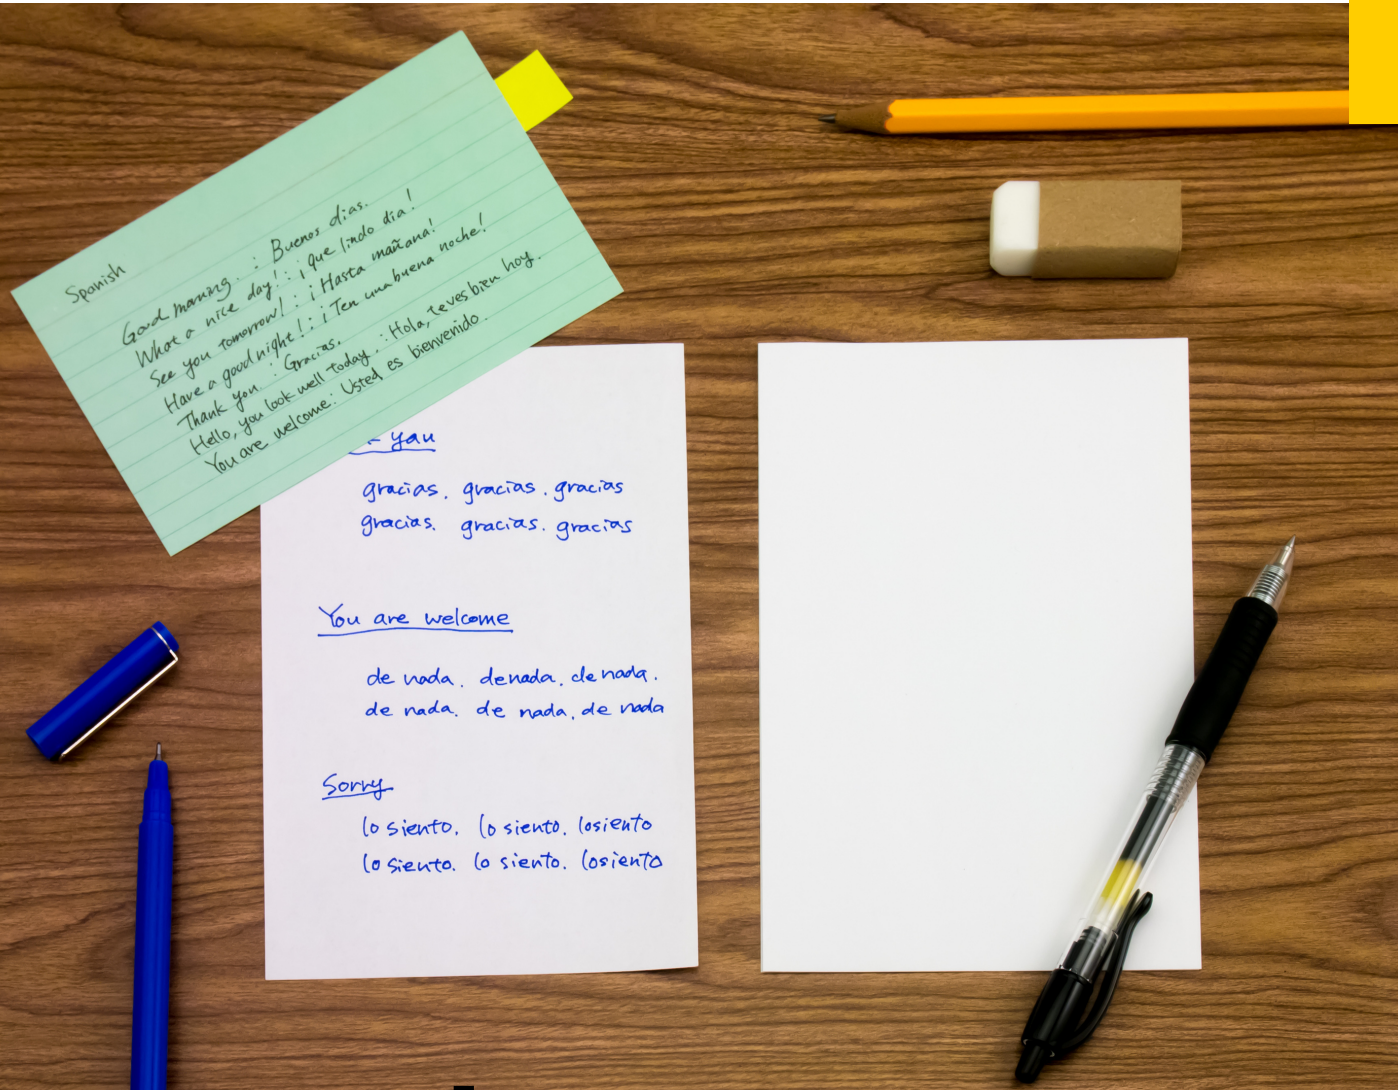 Spanish
Good morning. : Buenos dias.
What a nice day! : ¡que lindo dia!
See you tomorrow! : ¡Hasta mañana!
Have a good night! : ¡Ten una buena noche!
Thank you : Gracias.
Hello, you look well today. : Hola, te ves bien hoy.
You are welcome: Usted es bienvenido.
you
gracias. gracias. gracias
gracias. gracias. gracias
You are welcome
de nada. de nada. de nada.
de nada. de nada. de nada
Sorry
lo siento. lo siento. lo siento
lo siento. lo siento. lo siento